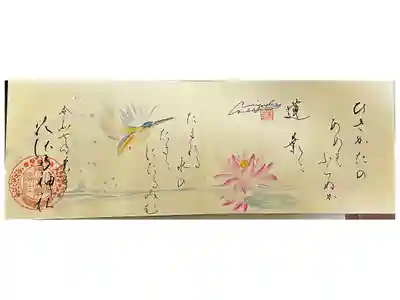 ひさかたの
あめも
ふらぬか
蓮
葉に
たまれる
水の
たまに
にたるみむ
令和
神社